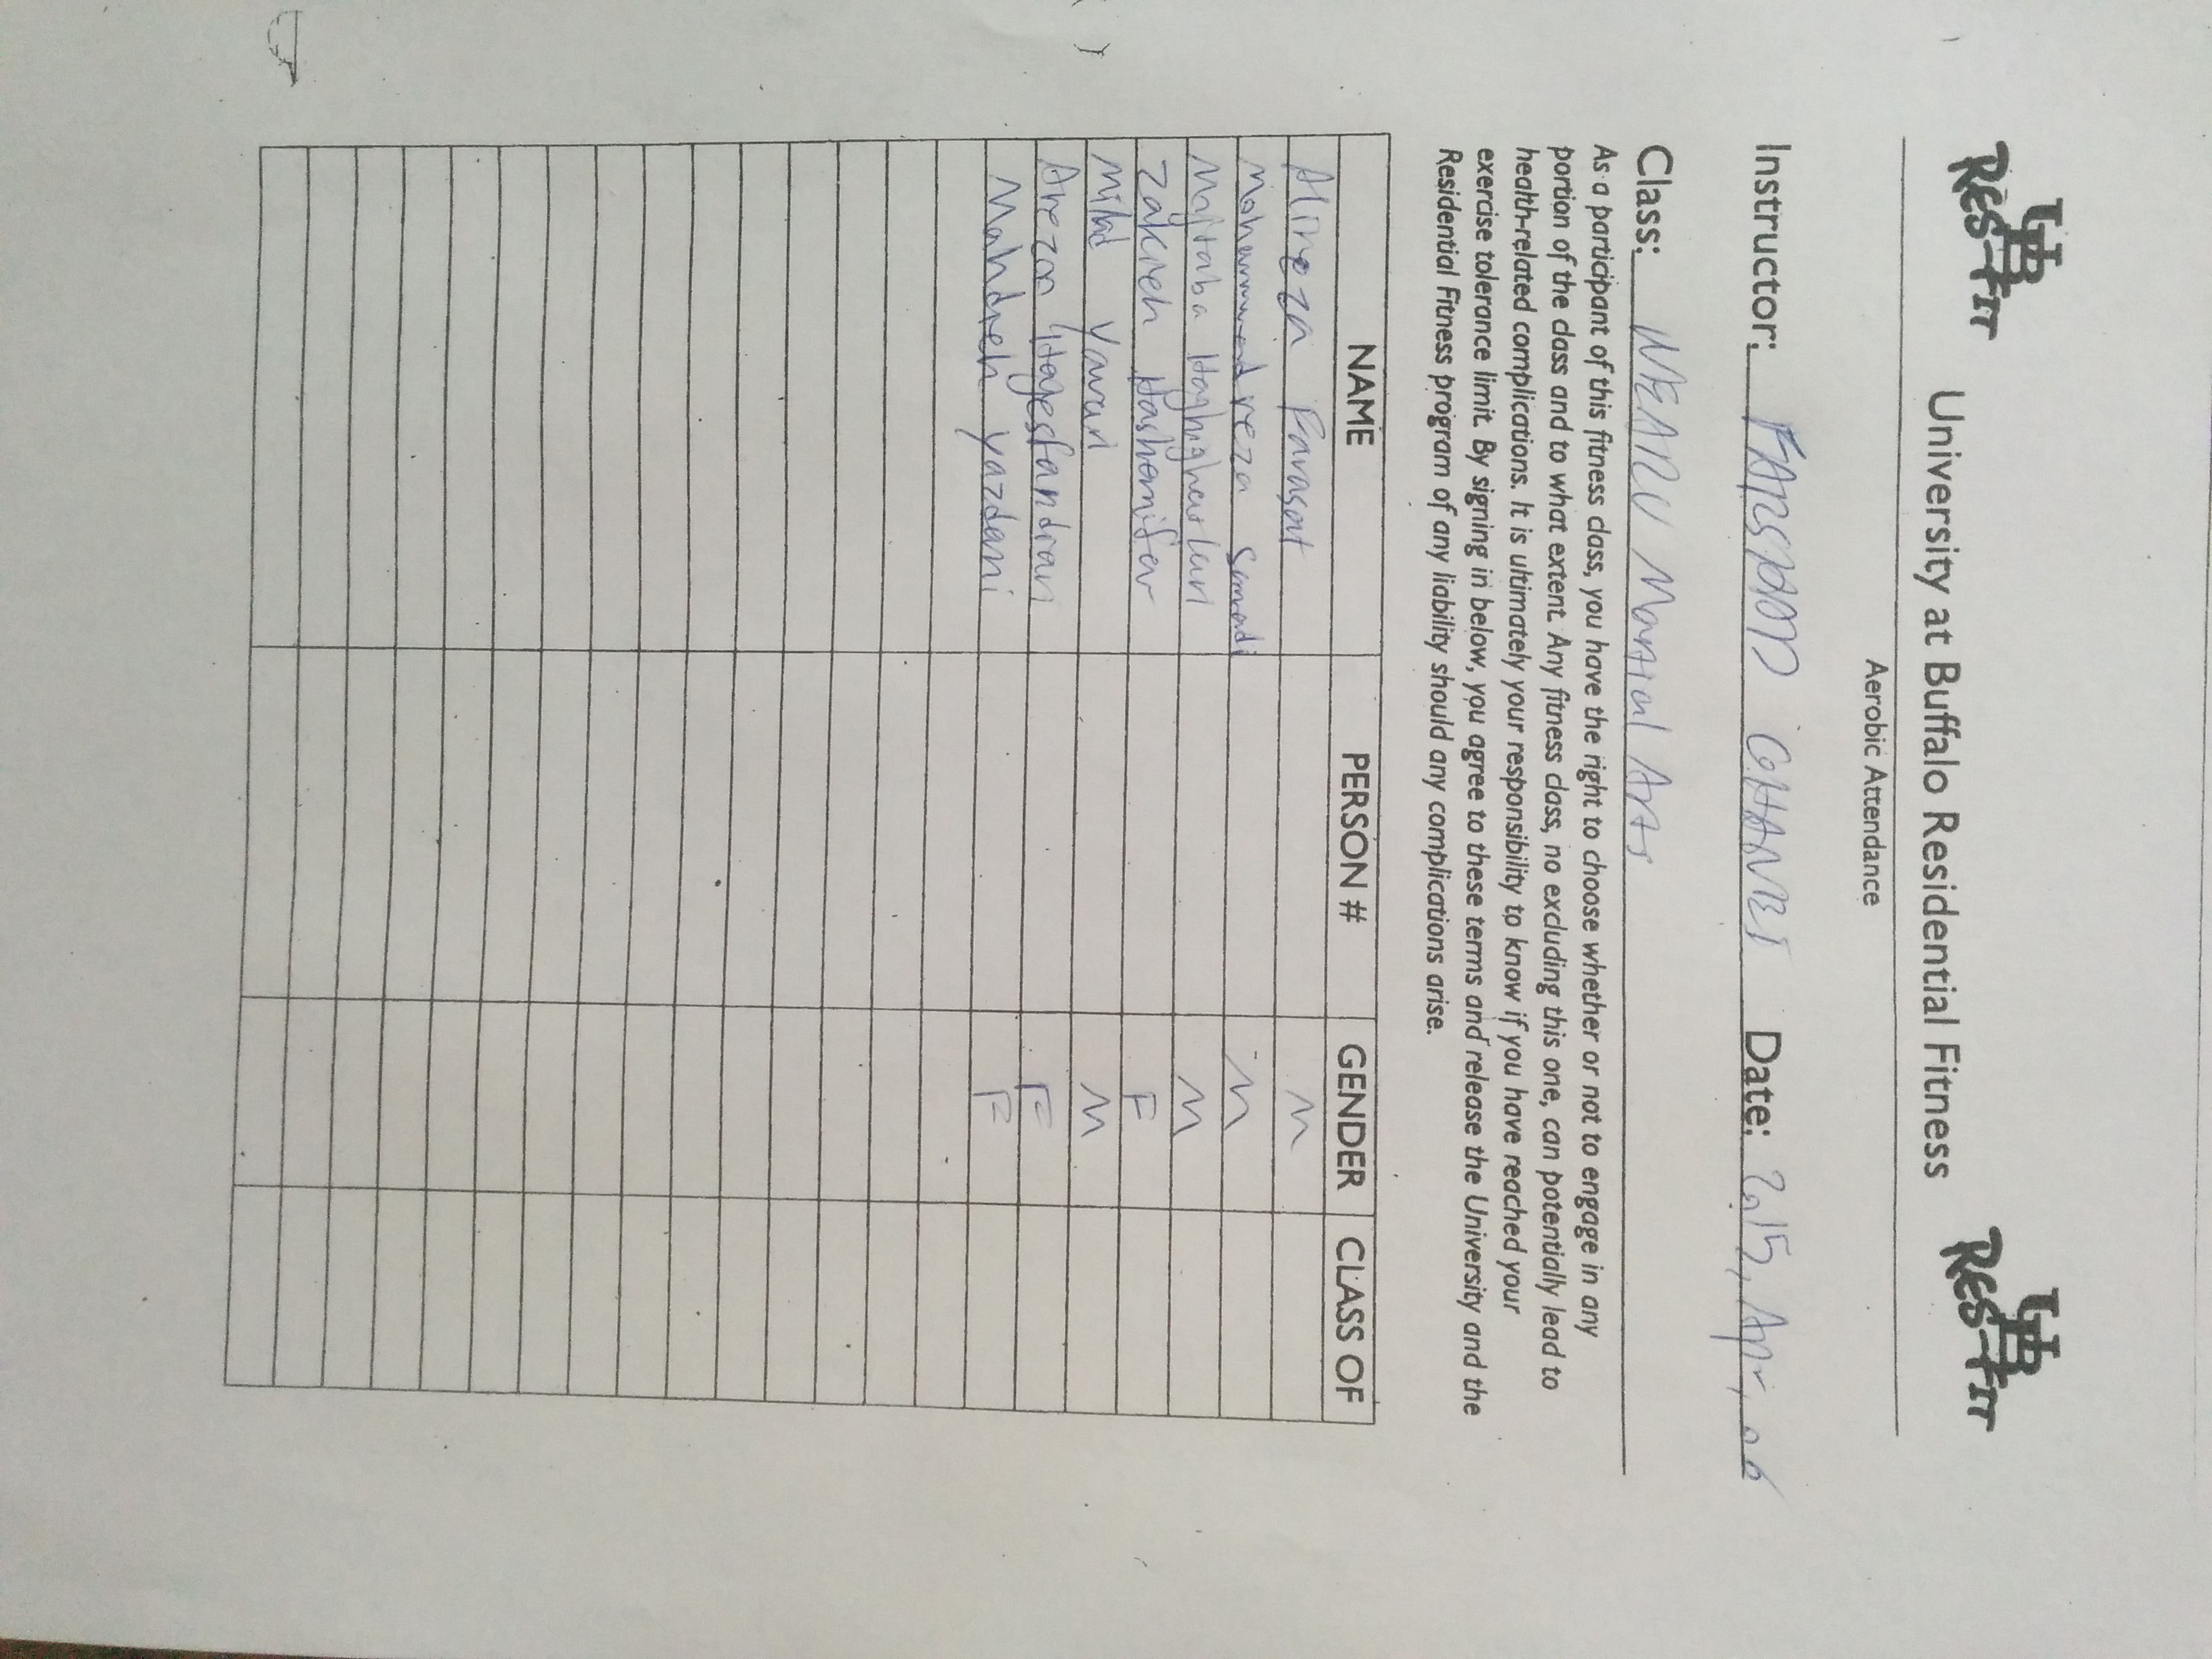 UB
RES-FIT
University at Buffalo Residential Fitness
UB
RES-FIT
Aerobic Attendance
Instructor: Date: 2015, Apr, 06
Class: Martial Arts
As a participant of this fitness class, you have the right to choose whether or not to engage in any
portion of the class and to what extent. Any fitness class, no excluding this one, can potentially lead to
health-related complications. It is ultimately your responsibility to know if you have reached your
exercise tolerance limit. By signing in below, you agree to these terms and release the University and the
Residential Fitness program of any liability should any complications arise.
NAME PERSON # GENDER CLASS OF
Alireza Farasat M
Mohammadreza Samadi M
Mojtaba M
Zakieh Hashemifar F
Milad Yavari M
Arezoo F
Mahdieh Yazdani F